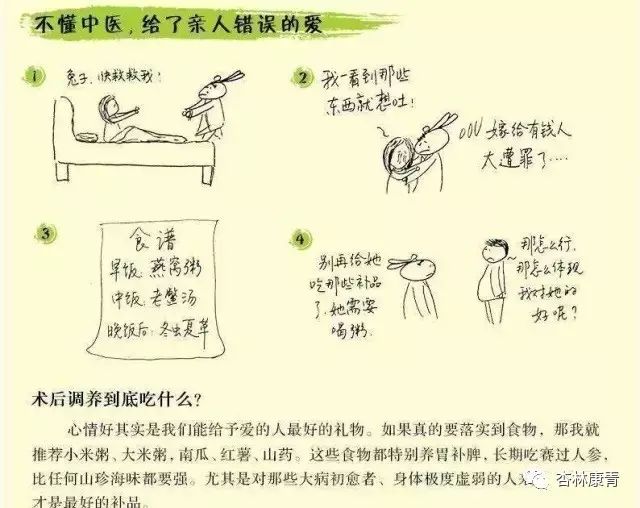 不懂中医，给了亲人错误的爱
1
兔子，快救救我！
2
我一看到那些
东西就想吐！
嫁给有钱人
大遭罪了…
3
食谱
早饭：燕窝粥
中饭：老鳖汤
晚饭后：冬虫夏草
4
别再给她
吃那些补品
了，她需要
喝粥．
那怎么行，
那怎么体现
我对她的
好呢？
术后调养到底吃什么？
心情好其实是我们能给予爱的人最好的礼物。如果真的要落实到食物，那我就
推荐小米粥、大米粥，南瓜、红薯、山药。这些食物都特别养胃补脾，长期吃赛过人参，
比任何山珍海味都要强。尤其是对那些大病初愈者、身体极度虚弱的人
才是最好的补品。
杏林康青